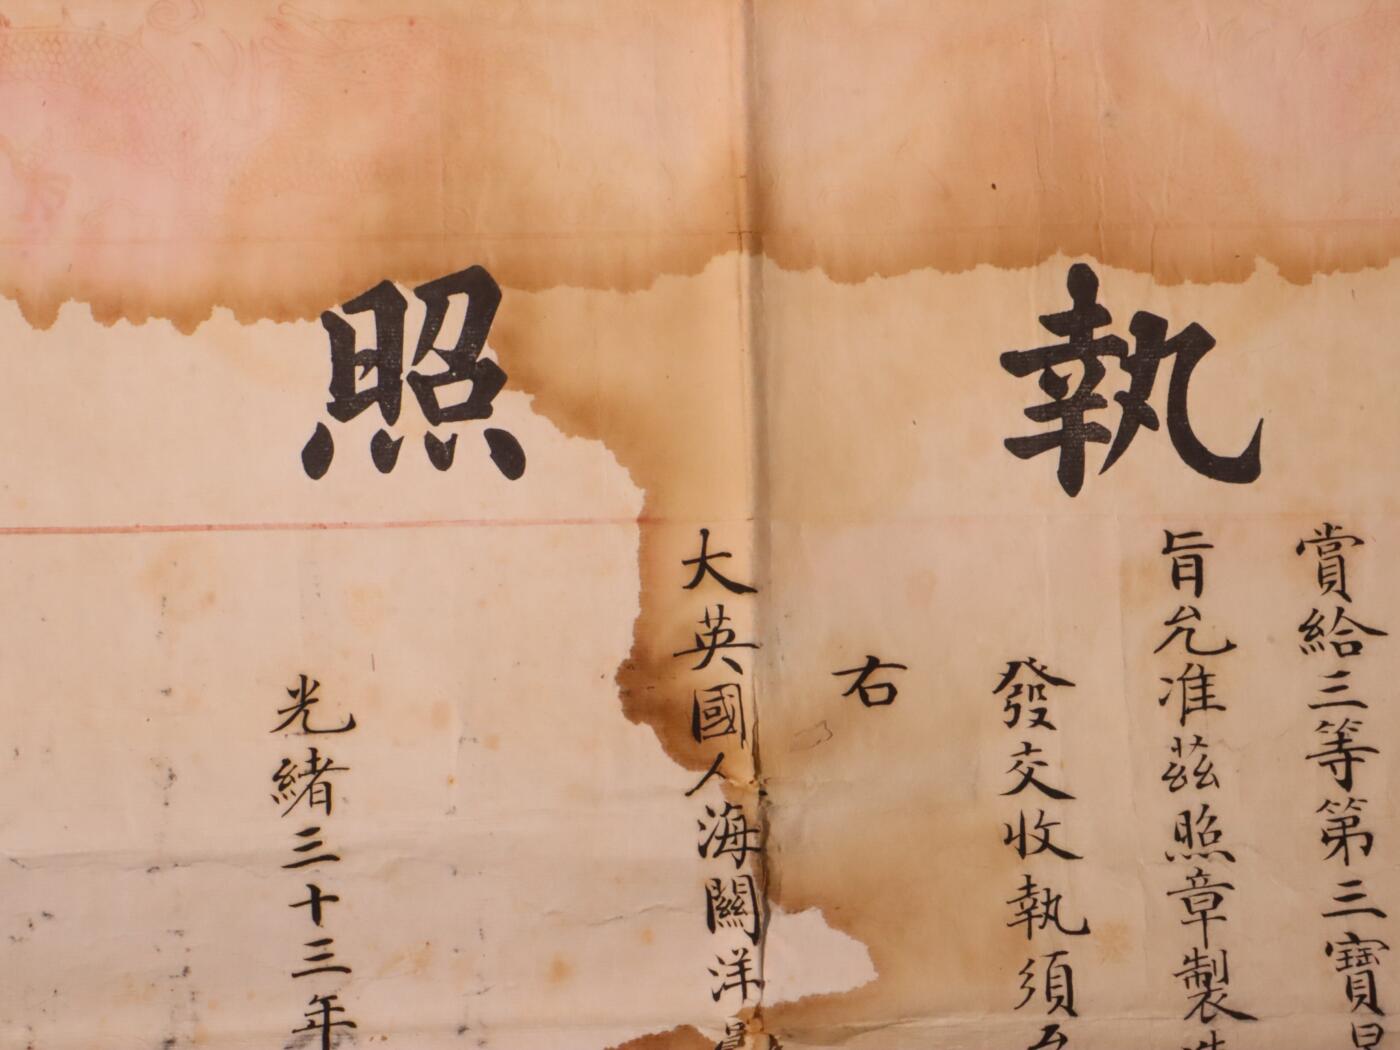 執照
賞給三等第三寶星
旨允准茲照章製造
發交收執須至
右
大英國人海關洋員
光緒三十三年